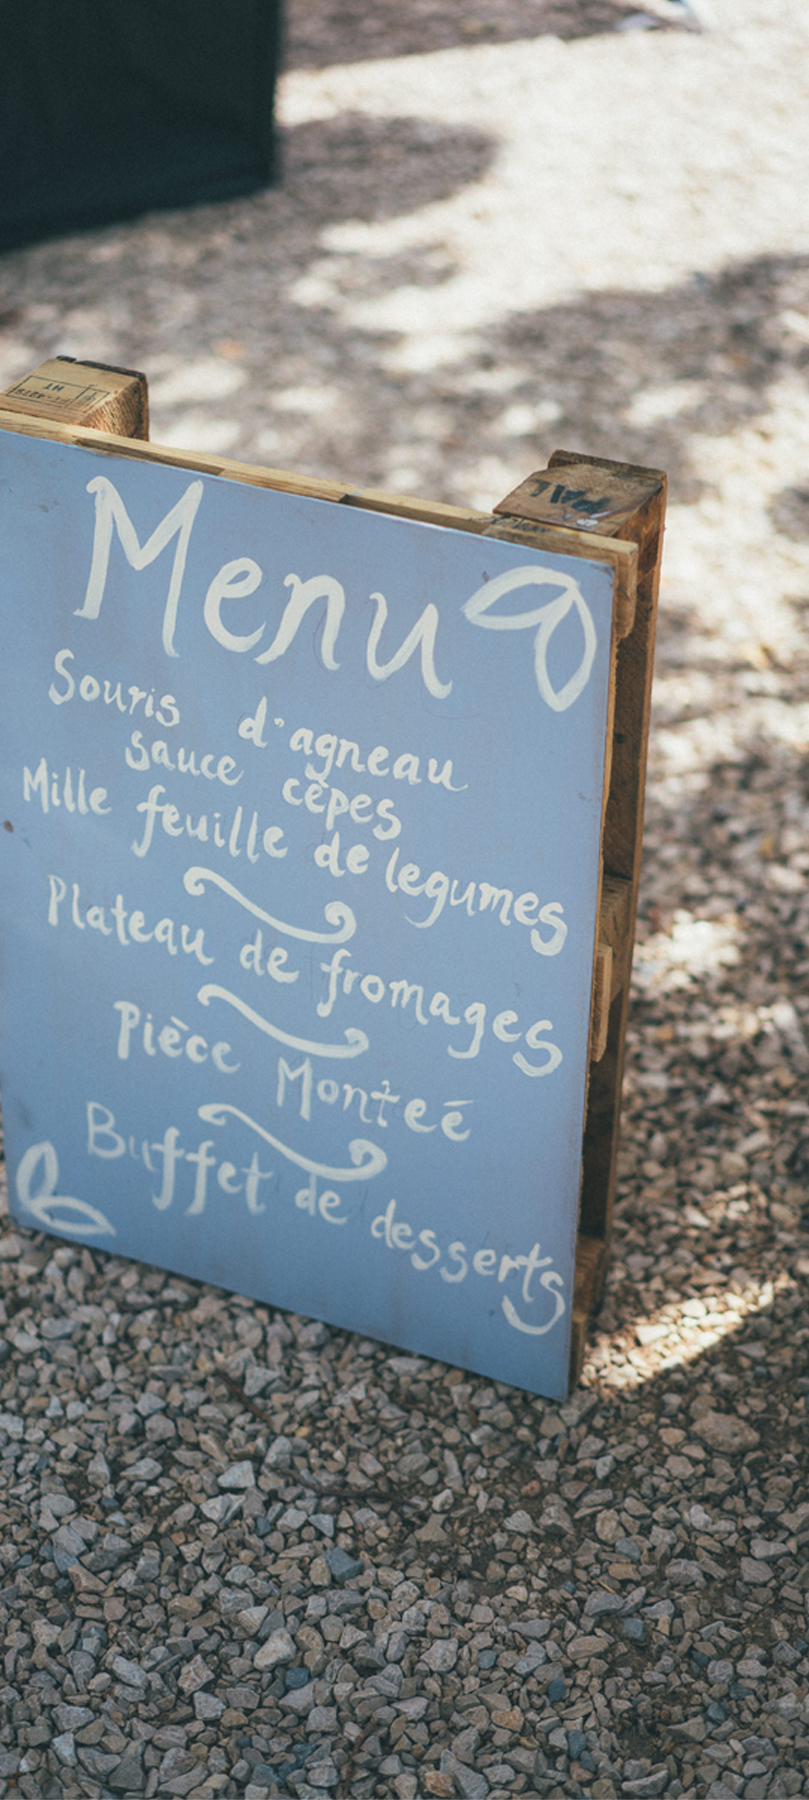 Menu
Souris d'agneau
sauce cèpes
Mille feuille de legumes
Plateau de fromages
Pièce Monteé
Buffet de desserts
HT
PAL